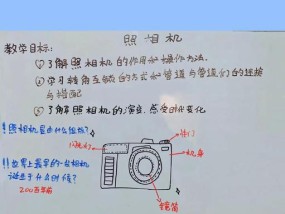 照相机
教学目标:
①了解照相机的作用和操作方法.
②学习转角互锁的方式和管道与管道们的连接
与搭配
③了解照相机的演变,感受时代变化
!照相机是由什么组成?
闪光灯
快门
机身
镜筒
!!世界上最早的一台相机
诞生于什么时候?
200百年前